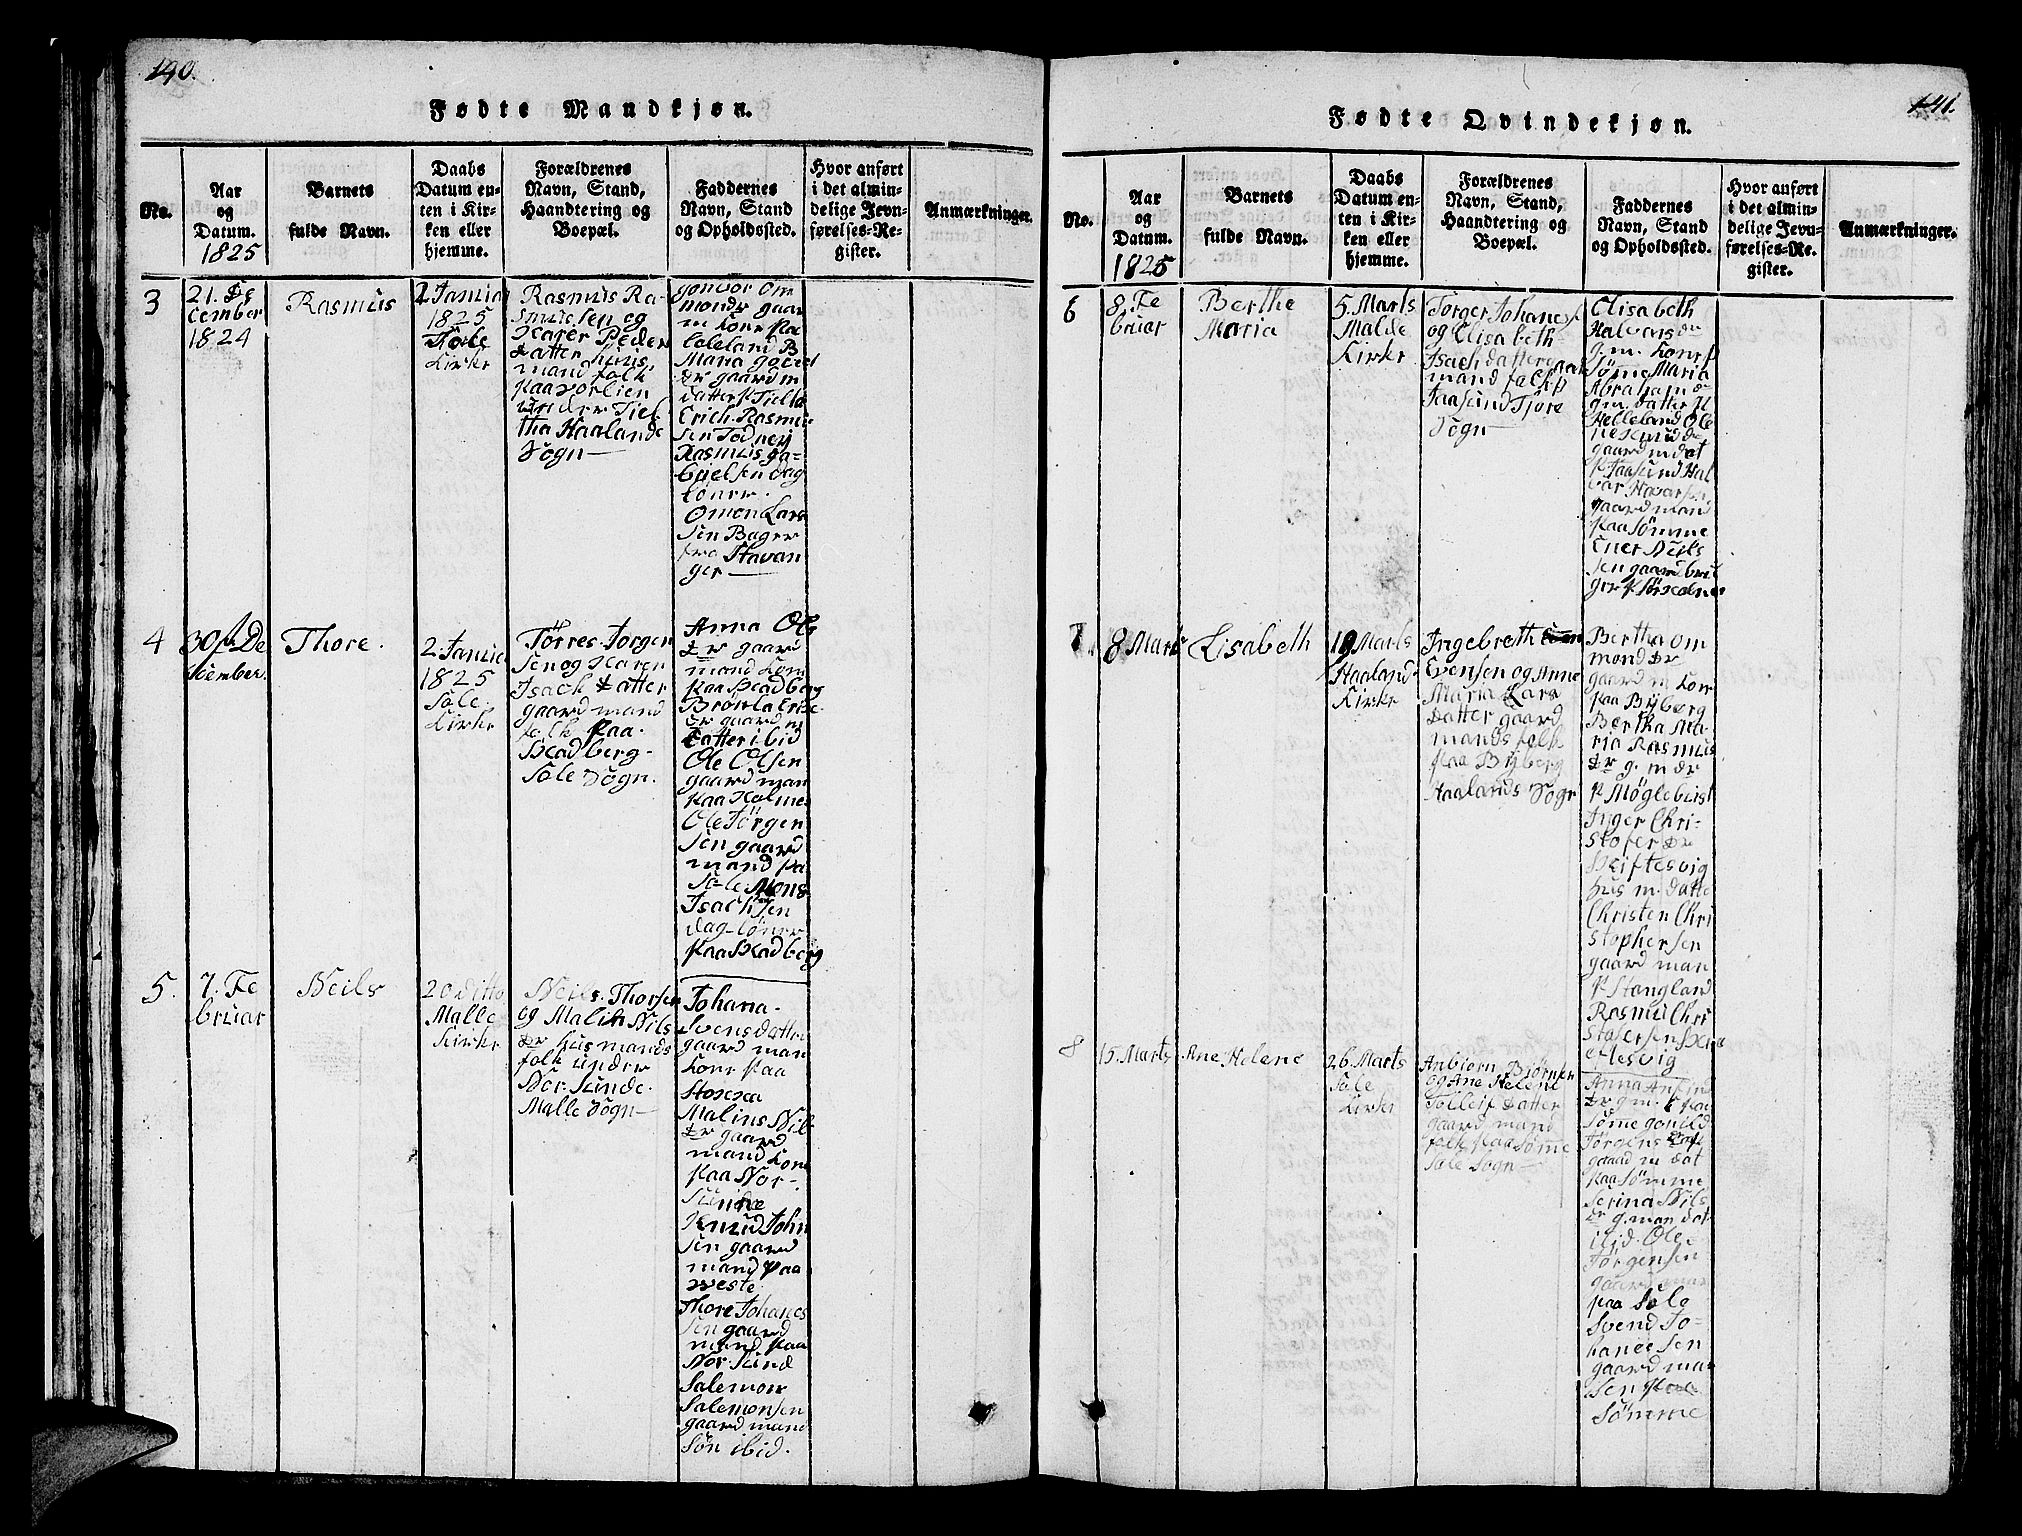 140.
Fødte Mandkjøn.
No.
Aar
og
Datum.
1825
Barnets
fulde Navn.
Daabs
Datum en-
ten i Kir-
ken eller
hjemme.
Forældrenes
Navn, Stand,
Haandtering og
Boepæl.
Faddernes
Navn, Stand
og Opholdssted.
Hvor anført
i det almin-
delige Jevn-
førelses-Re-
gister.
Anmærkninger.
3
21. De
cember
1824
Rasmus
1825
Sole
Kirke
Rasmus Ra-
smusen og
Karen Peder
datter huus
mand folk
paa
under Tiel
tha Haalands
Sogn
monds gaar
m kone paa
Maria
Dr gaard m
datter p Tielta
Erich Rasmu
sen
Rasmus ga-
briel sen dag
loner
Omon Lars
sen Bager
fra Stavan
ger
4
30 De
cember
Thore.
2 Janua
1825
Sole
Kirke
Tørres Jorgen
sen og Karen
Isach datter
gaard mand
folk paa
Skadberg
Sole Sogn.
Anna Ols
Dr gaard
mand kone
paa Skadberg
Dr gaard m
datter ibid
Ole Olsen
gaard man
paa Holme
Ole Jørgen
sen gaard
mand pa
Sole Mons
Isach sen
dag-löner
paa Skadberg
5.
7. Fe
bruar
Neils
20 ditto
Malle
Kirke
Neils Thorsen
og Malin Nils
Dr hus mands
folk under
Nor Sunde
Malle Sogn
Johana
Svens datter
gaard man
kone paa
Malins Nils
Dr gaard
mand kone
paa Nor-
sunde
Knud John
sen gaard
mand paa
weste
Thore Johanes
sen gaard
mand paa
Nor Sund
Salemon
Salemonsen
gaard mand
søn ibid.
141.
Fødte Qvindekjøn.
No.
Aar
og
Datum.
1825
Barnets
fulde Navn.
Daabs
Datum en-
ten i Kir-
ken eller
hjemme.
Forældrenes
Navn, Stand,
Haandtering og
Boepæl.
Faddernes
Navn, Stand
og Opholdssted.
Hvor anført
i det almin-
delige Jevn-
førelses-Re-
gister.
Anmærkninger.
6
8. Fe
bruar
Berthe
Maria
5. Marts
Malde
Kirke
Torger Johanes
og Elisabeth
Isach datter gaar
mand folk p
Jaasund Tjore
Sogn
Elisabeth
Halvars dr
g. m. kone p
Sømme Maria
Abraham dr
g m. datter p
Helleland Ole
gaard m dat
p Jaasund Hal
var Havarsen
gaard man
paa Sömme
Ener Neils
sen gaard bru
ger p
7
8 Marts
Lisabeth
19 Marts
Haaland
Kirke
Ingebreth
Evensen og Anne
Maria Lars
datter gaard
mands folk
paa Byberg
Haalands Sogn
Bertha om
mond Dr
gaard m kone
paa Byberg
Bertha Ma-
ria Rasmus
Dr g. m dr
p Mögleburst
Inger Chri-
stofer Dr
Skiftesvig
hus m. datte
Christen Chri
stophersen
gaard man
p Stangland
Rasmus Chri
stofersen
8
15. Marts
Ane Helene
26. Marts
Sole
Kirke
Anbiørn Biørnsen
og Ane Helene
Tolleif datter
gaard mand
folk paa Sømme
Sole Sogn
Anna
Dr g m. k paa
Sömme
Jörgens dat
gaard m dat
paa Sömme
Serina Nils
Dr g. man dat
ibid. Ole
Jörgensen
gaard man
paa Sole
Svend Jo-
hanessen
gaard man
sen paa
Sömme